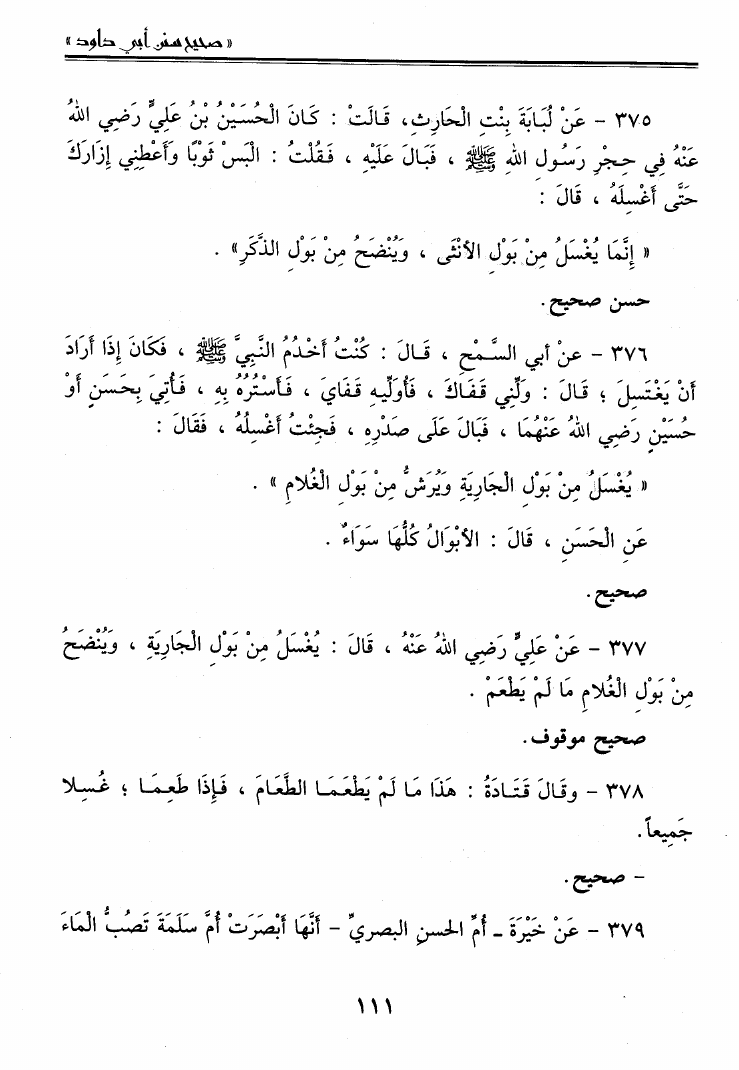 « صحيح سنن أبي داود »
٣٧٥ - عَنْ لُبَابَةَ بِنْتِ الْحَارِثِ، قَالَتْ : كَانَ الْحُسَيْنُ بْنُ عَلِيٍّ رَضِي اللهُ
عَنْهُ فِي حِجْرِ رَسُولِ اللهِ ﷺ ، فَبَالَ عَلَيْهِ ، فَقُلْتُ : الْبَسْ ثَوْبًا وَأَعْطِنِي إِزَارَكَ
حَتَّى أَغْسِلَهُ ، قَالَ :
« إِنَّمَا يُغْسَلُ مِنْ بَوْلِ الأنْثَى ، وَيُنْضَحُ مِنْ بَوْلِ الذَّكَرِ» .
حسن صحيح.
٣٧٦ - عنْ أبي السَّمْحِ ، قَالَ : كُنْتُ أخْدُمُ النَّبِيَّ ﷺ ، فَكَانَ إِذَا أَرَادَ
أَنْ يَغْتَسِلَ ؛ قَالَ : وَلِّنِي قَفَاكَ ، فَأُوَلِّيهِ قَفَايَ ، فَأَسْتُرُهُ بِهِ ، فَأُتِيَ بِحَسَنٍ أَوْ
حُسَيْنٍ رَضِي اللهُ عَنْهُمَا ، فَبَالَ عَلَى صَدْرِهِ ، فَجِئْتُ أغْسِلُهُ ، فَقَالَ :
« يُغْسَلُ مِنْ بَوْلِ الْجَارِيَةِ وَيُرَشُّ مِنْ بَوْلِ الْغُلَامِ » .
عَنِ الْحَسَنِ ، قَالَ : الأبْوَالُ كُلُّهَا سَوَاءٌ .
صحيح.
٣٧٧ - عَنْ عَلِيٍّ رَضِي اللهُ عَنْهُ ، قَالَ : يُغْسَلُ مِنْ بَوْلِ الْجَارِيَةِ ، وَيُنْضَحُ
مِنْ بَوْلِ الْغُلَامِ مَا لَمْ يَطْعَمْ .
صحيح موقوف.
٣٧٨ - وقَالَ قَتَادَةُ : هَذَا مَا لَمْ يَطْعَمَا الطَّعَامَ ، فَإِذَا طَعِمَا ؛ غُسِلا
جَمِيعاً.
- صحيح.
٣٧٩ - عَنْ خَيْرَةَ - أُمِّ الحسنِ البصريِّ - أَنَّهَا أَبْصَرَتْ أُمَّ سَلَمَةَ تَصُبُّ الْمَاءَ
١١١